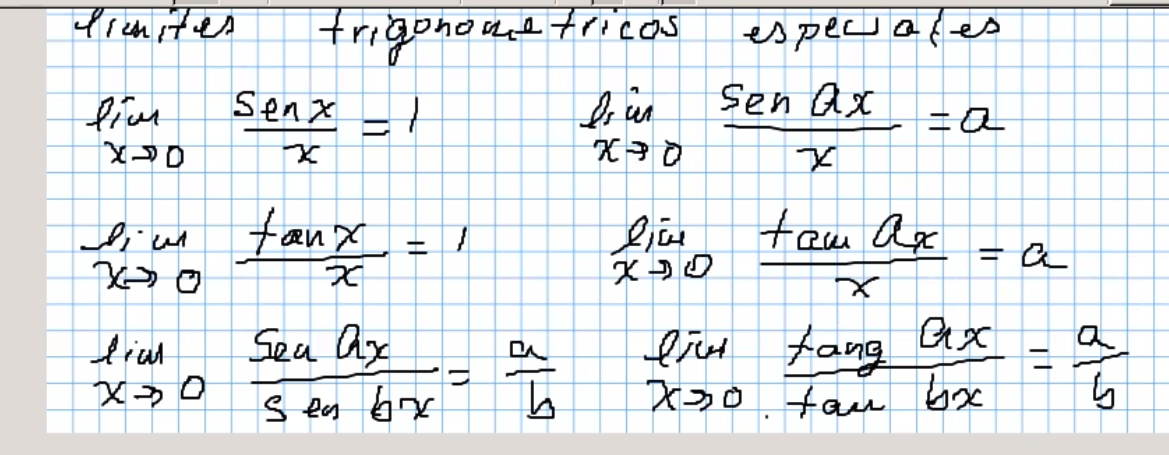 limites trigonometricos especiales
lim x→0 sen x / x = 1 lim x→0 sen ax / x = a
lim x→0 tan x / x = 1 lim x→0 tan ax / x = a
lim x→0 sen ax / sen bx = a / b lim x→0 tang ax / tan bx = a / b